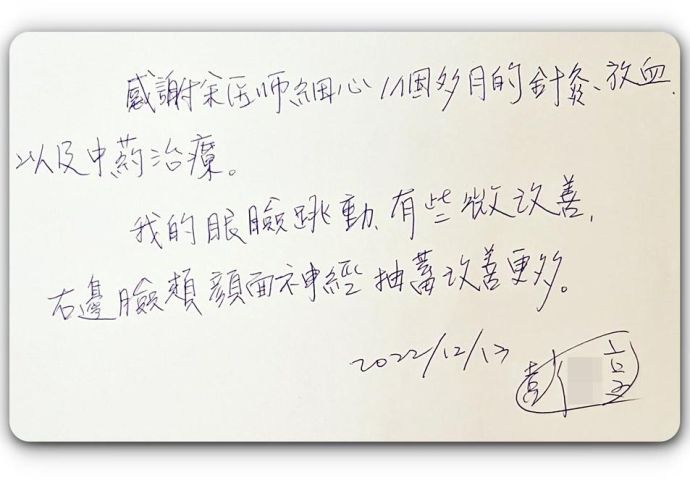 感謝徐医师細心1個多月的針灸、放血
以及中药治療。
我的眼瞼跳動、有些微改善,
右邊臉頰顏面神經抽蓄改善更多。
2022/12/13
彭